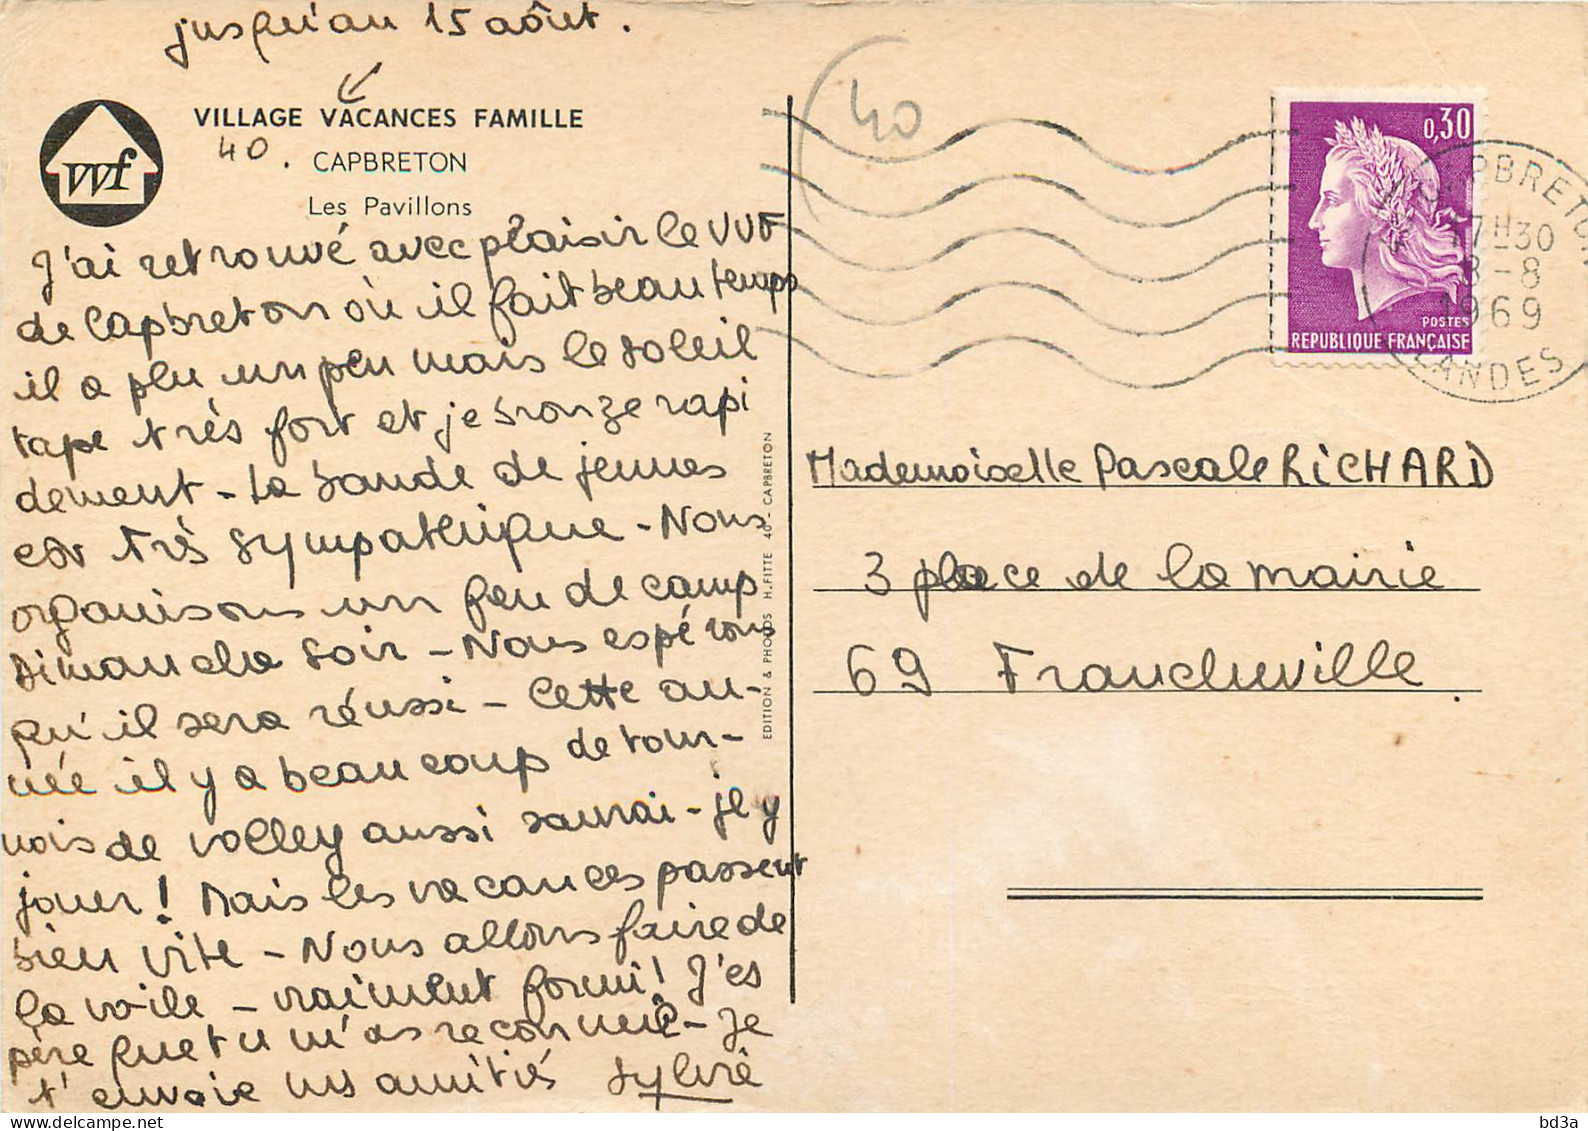 jusqu'au 15 août.
VILLAGE VACANCES FAMILLE
vvf
40.
CAPBRETON
Les Pavillons
J'ai retrouvé avec plaisir le VVF
de Capbreton où il fait beau temps
il a plu un peu mais le soleil
tape très fort et je bronze rapi
dement - la bande de jeunes
est très sympathique - Nous
organisons un feu de camp
dimanche soir - Nous espérons
qu'il sera réussi - Cette an-
née il y a beaucoup de tour-
nois de volley aussi j'y
jouer! Mais les vacances passent
bien vite - Nous allons faire de
la voile - vraiment formi! J'es
père que tu m'as reconnue - Je
t'envoie mes amitiés Sylvie
EDITION & PHOTOS H. FITTE 40 - CAPBRETON
40
0,30
POSTES
REPUBLIQUE FRANÇAISE
CAPBRETON
17H30
8-8
1969
LANDES
Mademoiselle Pascale RICHARD
3 place de la mairie
69 Francheville
bd3a